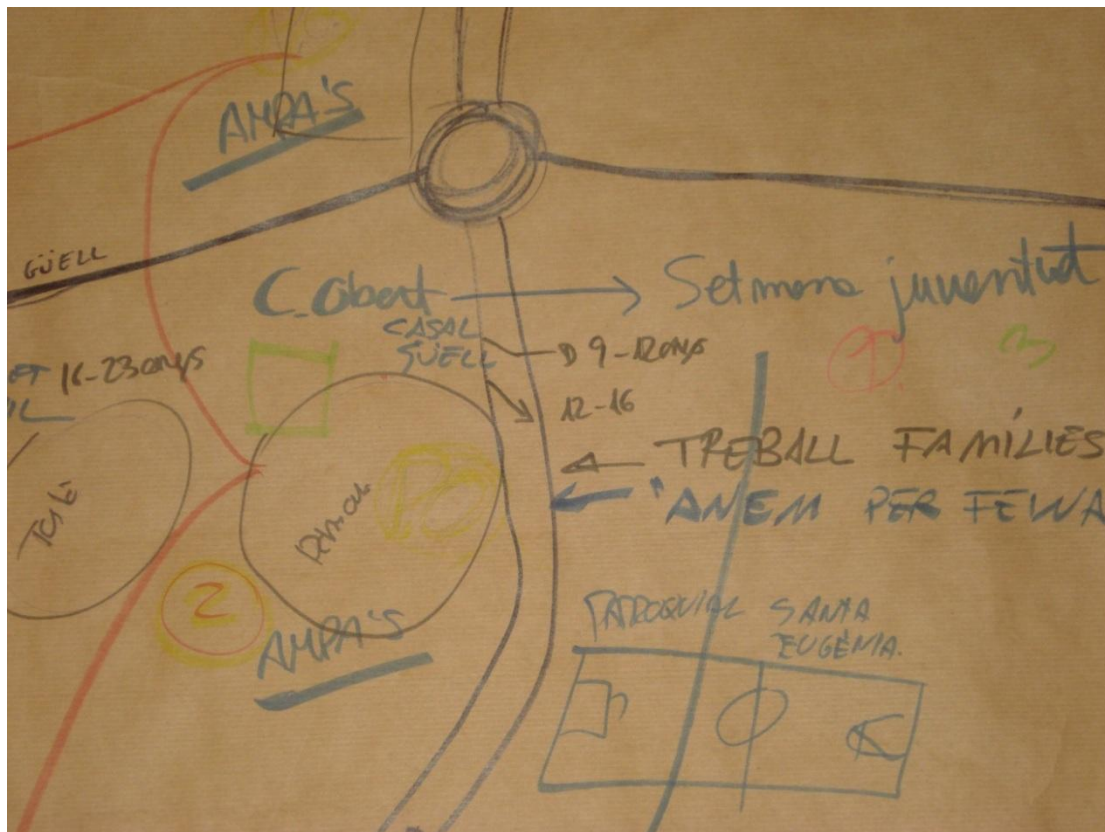 AMPA'S
GÜELL
C_Obert → Setmana juventut
CASAL
GÜELL
16-23 anys
D 9-12 anys
12-16
1
3
TREBALL FAMÍLIES
"ANEM PER FEINA
2
AMPA'S
PARROQUIAL SANTA
EUGÈNIA.